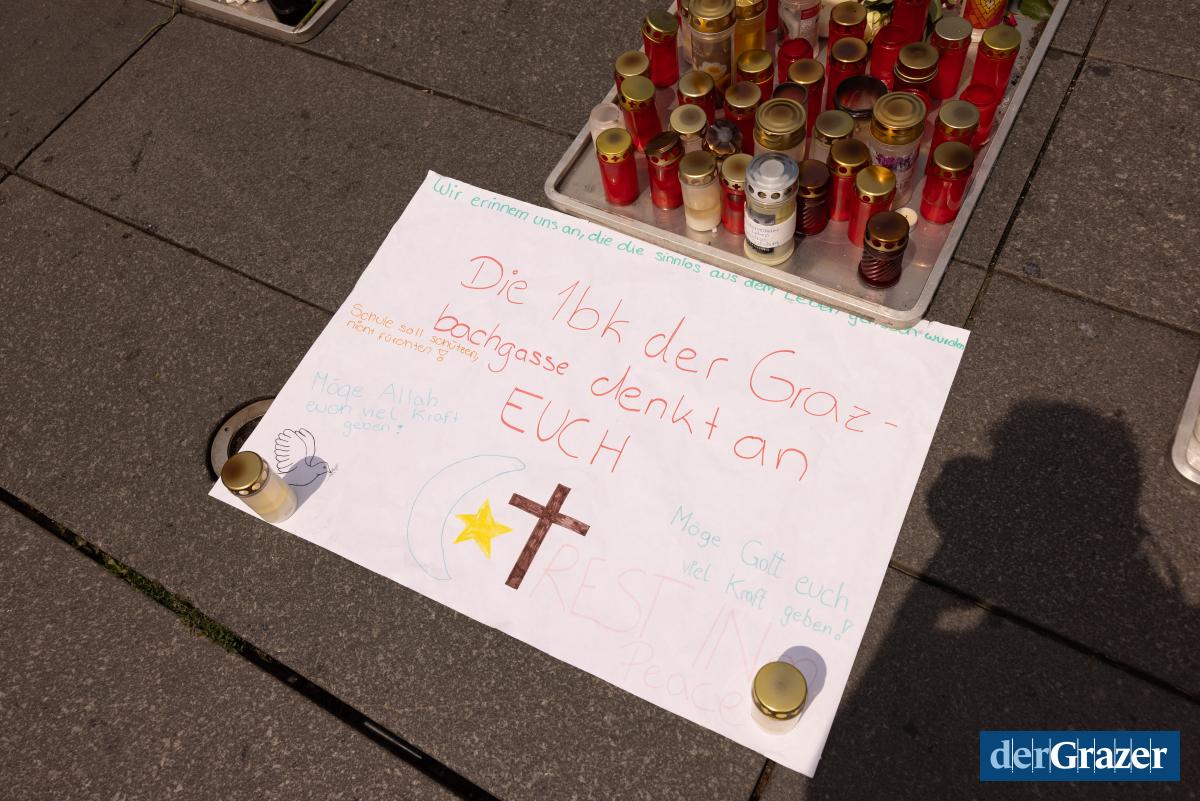 Wir erinnern uns an, die die sinnlos aus dem Leben gerissen wurden
Die 1bk der Graz-
bachgasse denkt an
EUCH
Schule soll schützen,
nicht fürchten!
Möge Allah
euch viel Kraft
geben!
Möge Gott euch
viel Kraft geben!
REST IN
Peace
derGrazer